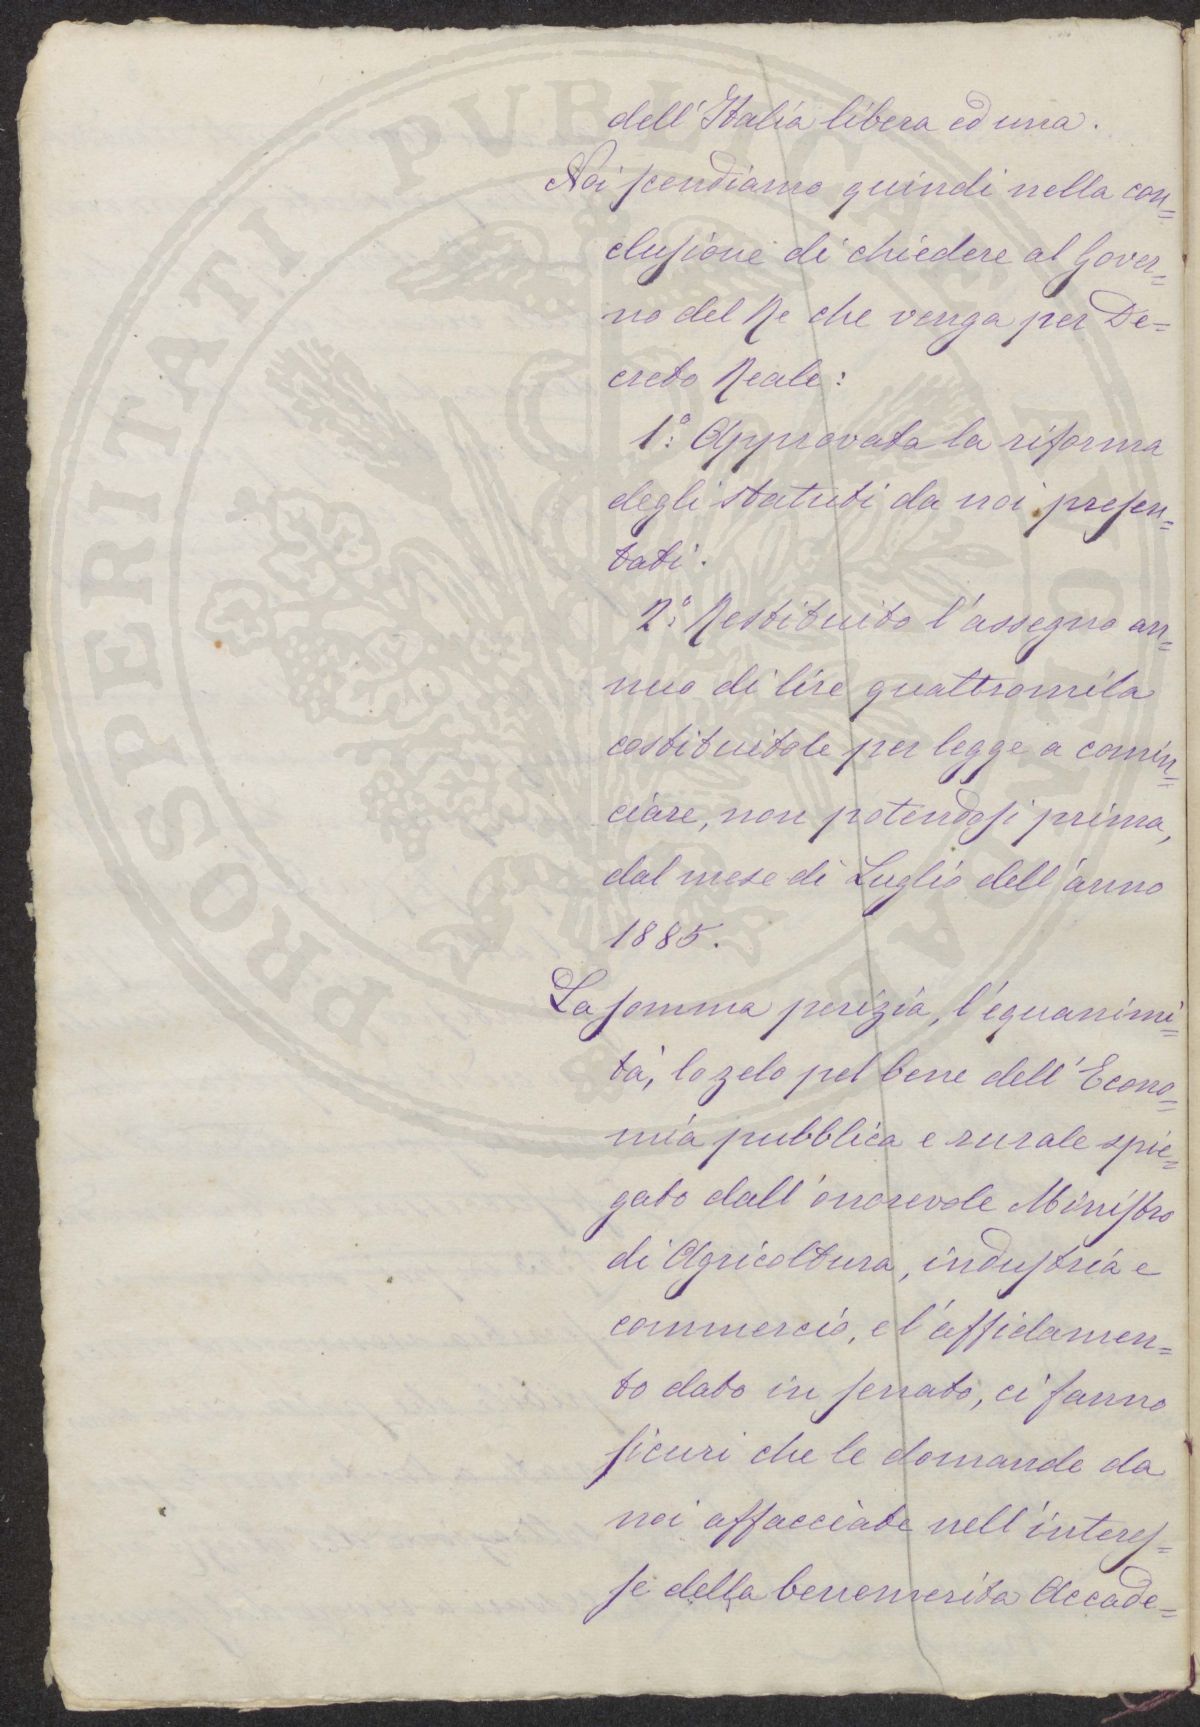 dell'Italia libera ed una.
Noi scendiamo quindi nella con=
clusione di chiedere al Gover=
no del Re che venga per De=
creto Reale:
1.° Approvata la riforma
degli statuti da noi presen=
tati.
2.° Restituito l'assegno an=
nuo di lire quattromila
costituitole per legge a comin=
ciare, non potendosi prima,
dal mese di Luglio dell'anno
1885.
La somma perizia, l'equanimi=
tà, lo zelo pel bene dell'Econo=
mia pubblica e rurale spie=
gato dall'onorevole Ministro
di Agricoltura, industria e
commercio, e l'affidamen=
to dato in senato, ci fanno
sicuri che le domande da
noi affacciate nell'interes=
se della benemerita Accade=
PROSPERITATI PVBLICAE AVGENDAE